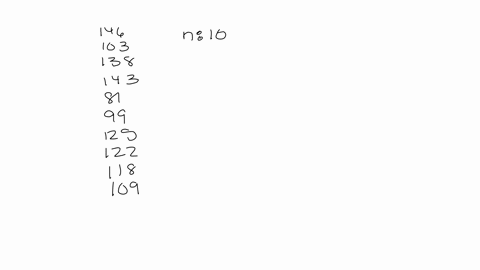 146
n:10
103
138
143
81
99
129
122
118
109